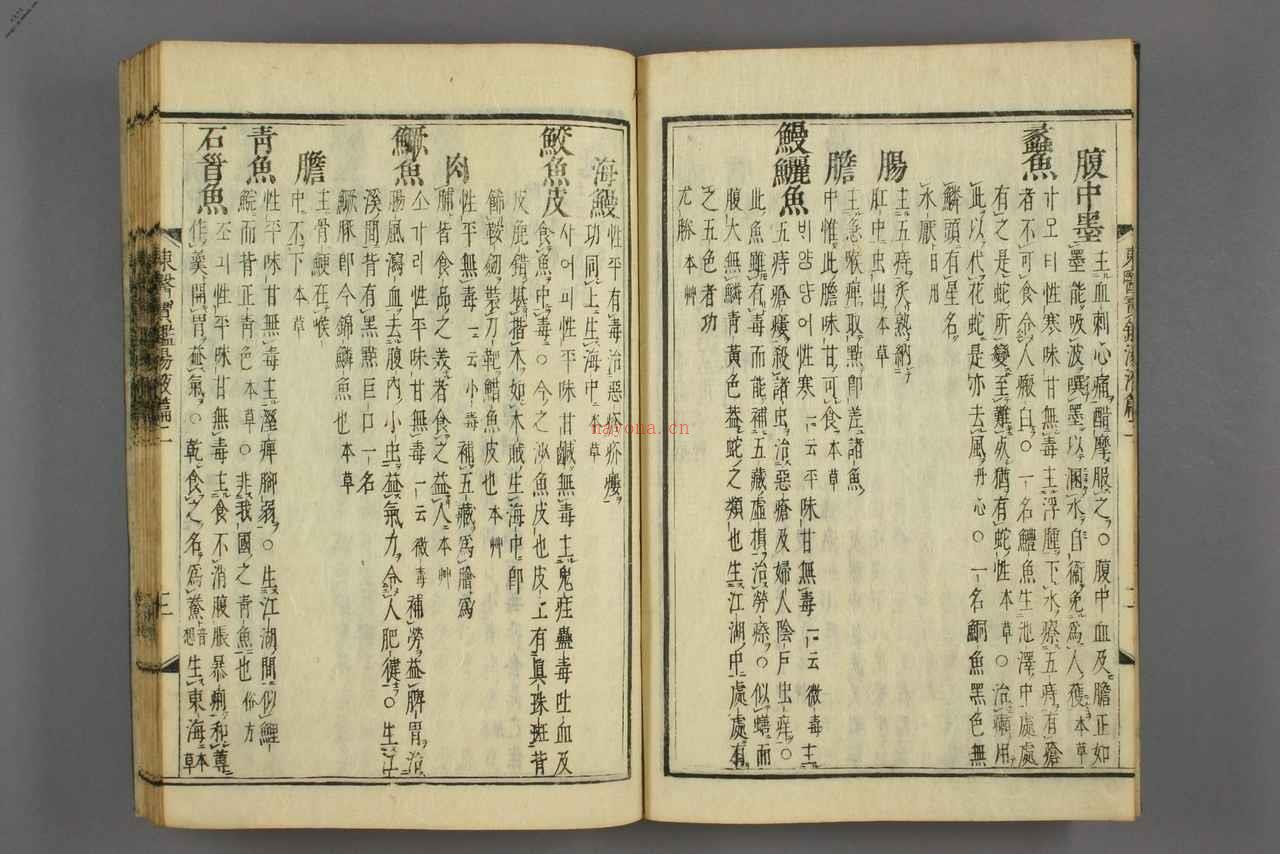 腹中墨主血刺心痛醋摩服之○腹中血及膽正如
墨能吸波噀墨以溷水自衛免爲人獲本草
蠡魚가모티性寒味甘無毒主浮腫下水療五痔有瘡
者不可食令人瘢白○一名鱧魚生池澤中處處
有之是蛇所變至難死猶有蛇性本草○治癩用
此以代花蛇是亦去風丹心○一名鮦魚黑色無
鱗頭有星名
水厭日用
腸主五痔灸熟納
肛中虫出本草
膽主急喉痺取點卽差諸魚
中惟此膽味甘可食本草
鰻鱺魚비얌댱어性寒一云平味甘無毒一云微毒主
五痔瘡瘻殺諸虫治惡瘡及婦人陰戶虫痒○
此魚雖有毒而能補五藏虛損治勞瘵○似蟮而
腹大無鱗靑黃色盖蛇之類也生江湖中處處有
之五色者功
尤勝本艸
海鰻性平有毒治惡瘡疥瘻
功同上生海中本草
鮫魚皮사어피性平味甘鹹無毒主鬼疰蠱毒吐血及
食魚中毒○今之沙魚皮也皮上有眞珠斑背
皮鹿錯堪揩木如木賊生海中卽
餙鞍劒裝刀靶䱜魚皮也本艸
肉性平無毒一云小毒補五藏爲膾爲
脯皆食品之美者食之益人本艸
鱖魚소가리性平味甘無毒一云微毒補勞益脾胃治
腸風瀉血去腹內小虫益氣力令人肥健○生江
溪間背有黑點巨口一名
鱖豚卽今錦鱗魚也本草
膽主骨鯁在喉
中不下本草
靑魚性平味甘無毒主濕痺脚弱○生江湖間似鯉
鯇而背正靑色本草○非我國之靑魚也俗方
石首魚조긔性平味甘無毒主食不消腹脹暴痢和蓴
作羹開胃益氣○乾食之名爲鯗音想生東海本草
東醫寶鑑湯液篇二
三
nayona.cn